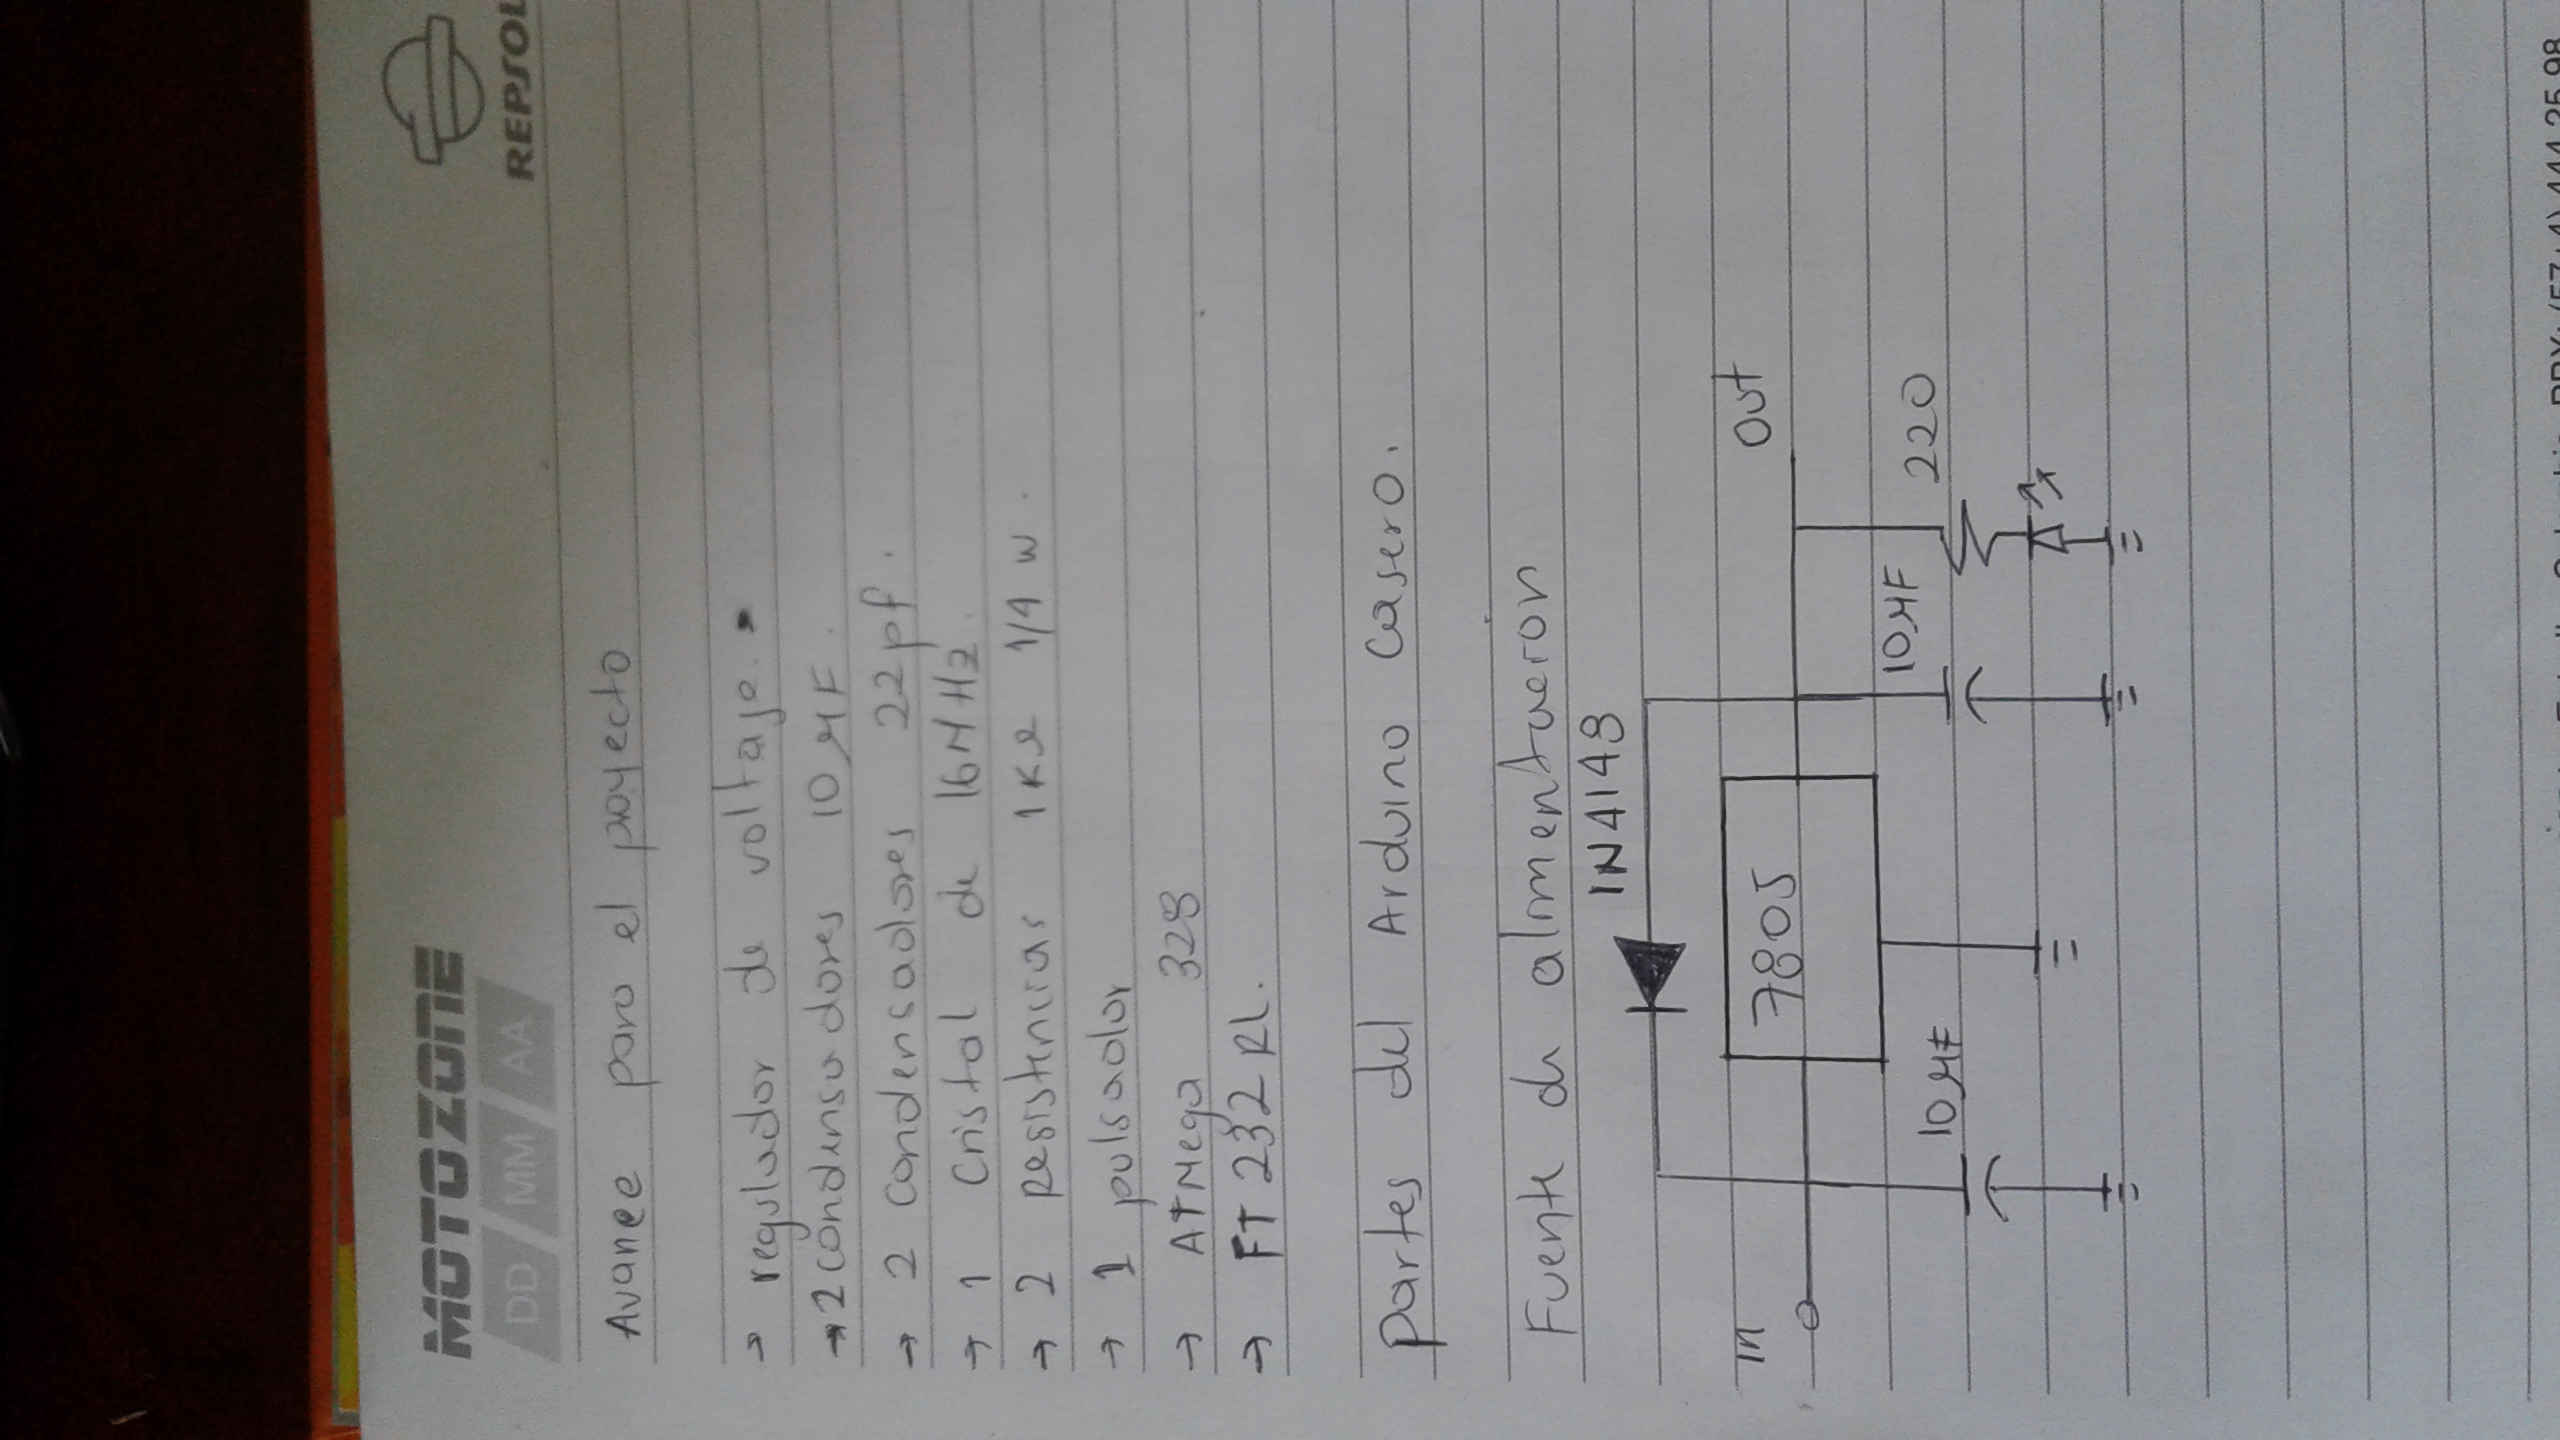 MOTOZONE
DD MM AA
REPSOL
Avance para el poyecto
→ regulador de voltaje.
→ 2 condensadores 10 µF.
→ 2 condensadores 22pf.
→ 1 Cristal de 16MHz.
→ 2 Resistencias 1KΩ 1/4 w.
→ 1 pulsador
→ ATMega 328
→ FT 232 RL.
Partes del Arduino Casero.
Fuente de alimentacion
1N4148
in
7805
Out
10µF
10µF
220
PBX: (57+4) 444 25 98